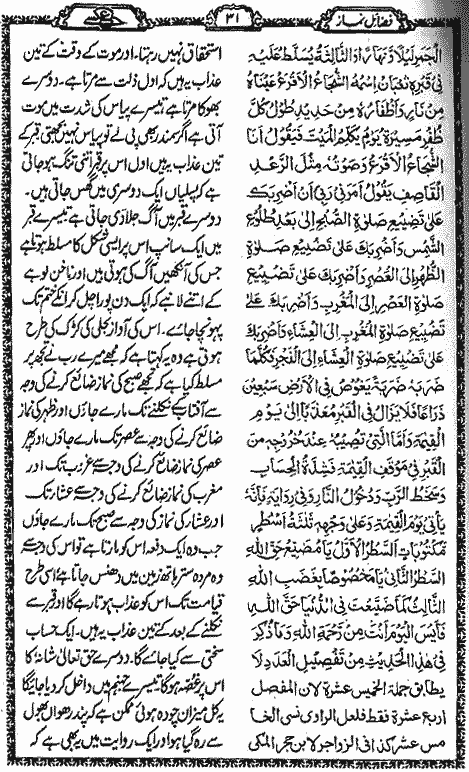 فضائل نماز
۳۱
الجمر ليلا ونهارا والثالثة يسلط عليه
فى قبره ثعبان اسمه الشجاع الاقرع عيناه
من نار واظفاره من حديد طول كل
ظفر مسيرة يوم يكلم الميت فيقول انا
الشجاع الاقرع وصوته مثل الرعد
القاصف يقول امرنى ربى ان اضربك
على تضييع صلوة الصبح الى بعد طلوع
الشمس واضربك على تضييع صلوة
الظهر الى العصر واضربك على تضييع
صلوة العصر الى المغرب واضربك على
تضييع صلوة المغرب الى العشاء واضربك
على تضييع صلوة العشاء الى الفجر فكلما
ضربه ضربة يغوص فى الارض سبعين
ذراعا فلا يزال فى القبر معذبا الى يوم
القيمة واما التى تصيبه عند خروجه من
القبر فى موقف القيمة فشدة الحساب
وسخط الرب ودخول النار وفى رواية فانه
يأتى يوم القيمة وعلى وجهه ثلثة اسطر
مكتوبات السطر الاول يا مضيع حق الله
السطر الثانى يا مخصوصا بغضب الله
الثالث كما ضيعت فى الدنيا حق الله
فآيس اليوم انت من رحمة الله وما ذكر
فى هذا الحديث من تفصيل العدد لا
يطابق جملة الخمس عشرة لان المفصل
اربع عشرة فقط فلعل الراوى نسى الخا
مس عشر كذا فى الزواجر لابن حجر المكى
استحقاق نہیں رہتا۔ اور موت کے وقت کے تین
عذاب یہ ہیں کہ اول ذلت سے مرتا ہے۔ دوسرے
بھوکا مرتا ہے تیسرے پیاس کی شدت میں موت
آتی ہے اگر سمندر بھی پی لے تو پیاس نہیں بجھتی قبر کے
تین عذاب یہ ہیں اول اس پر قبر اتنی تنگ ہو جاتی
ہے کہ پسلیاں ایک دوسری میں گھس جاتی ہیں۔
دوسرے قبر میں آگ جلا دی جاتی ہے تیسرے قبر
میں ایک سانپ اس پر ایسی شکل کا مسلط ہوتا ہے
جس کی آنکھیں آگ کی ہوتی ہیں اور ناخن لوہے
کے اتنے لانبے کہ ایک دن پورا چل کر انکے ختم تک
پہونچا جائے۔ اس کی آواز بجلی کی کڑک کی طرح
ہوتی ہے وہ یہ کہتا ہے کہ مجھے میرے رب نے تجھ پر
مسلط کیا ہے کہ تجھے صبح کی نماز ضائع کرنے کی وجہ
سے آفتاب کے نکلنے تک مارے جاؤں اور ظہر کی نماز
ضائع کرنے کی وجہ سے عصر تک مارے جاؤں اور پھر
عصر کی نماز ضائع کرنے کی وجہ سے غروب تک اور
مغرب کی نماز ضائع کرنے کی وجہ سے عشاء تک
اور عشاء کی نماز کی وجہ سے صبح تک مارے جاؤں
جب وہ ایک دفعہ اس کو مارتا ہے تو اس کی وجہ سے
وہ مردہ ستر ہاتھ زمین میں دھنس جاتا ہے اسی طرح
قیامت تک اس کو عذاب ہوتا رہے گا اور قبر سے
نکلنے کے بعد کے تین عذاب یہ ہیں۔ ایک حساب
سختی سے کیا جائے گا۔ دوسرے حق تعالیٰ شانہٗ کا
اس پر غصہ ہوگا تیسرے جہنم میں داخل کر دیا جائیگا
یہ کل میزان چودہ ہوئی ممکن ہے کہ پندرھواں بھول
سے رہ گیا ہو اور ایک روایت میں یہ بھی ہے کہ